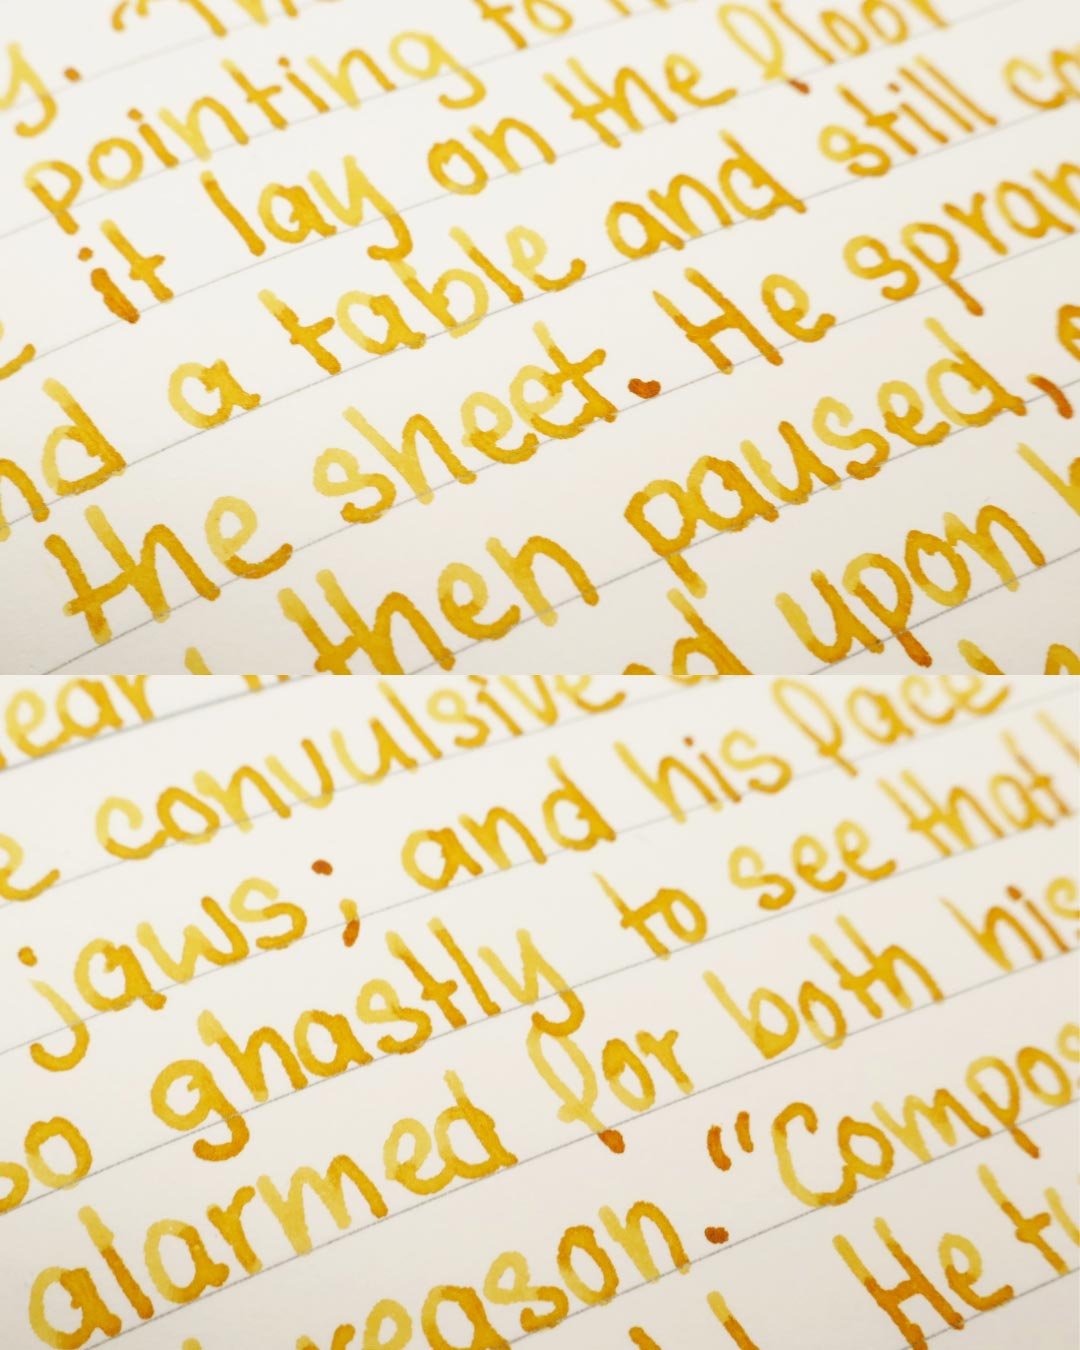 y. "
pointing to
it lay on the floor
nd a table and still co
the sheet. He spran
then paused,
d upon h
ear
e convulsive
jaws; and his face
so ghastly to see that
alarmed for both his
reason. "Compos
He t